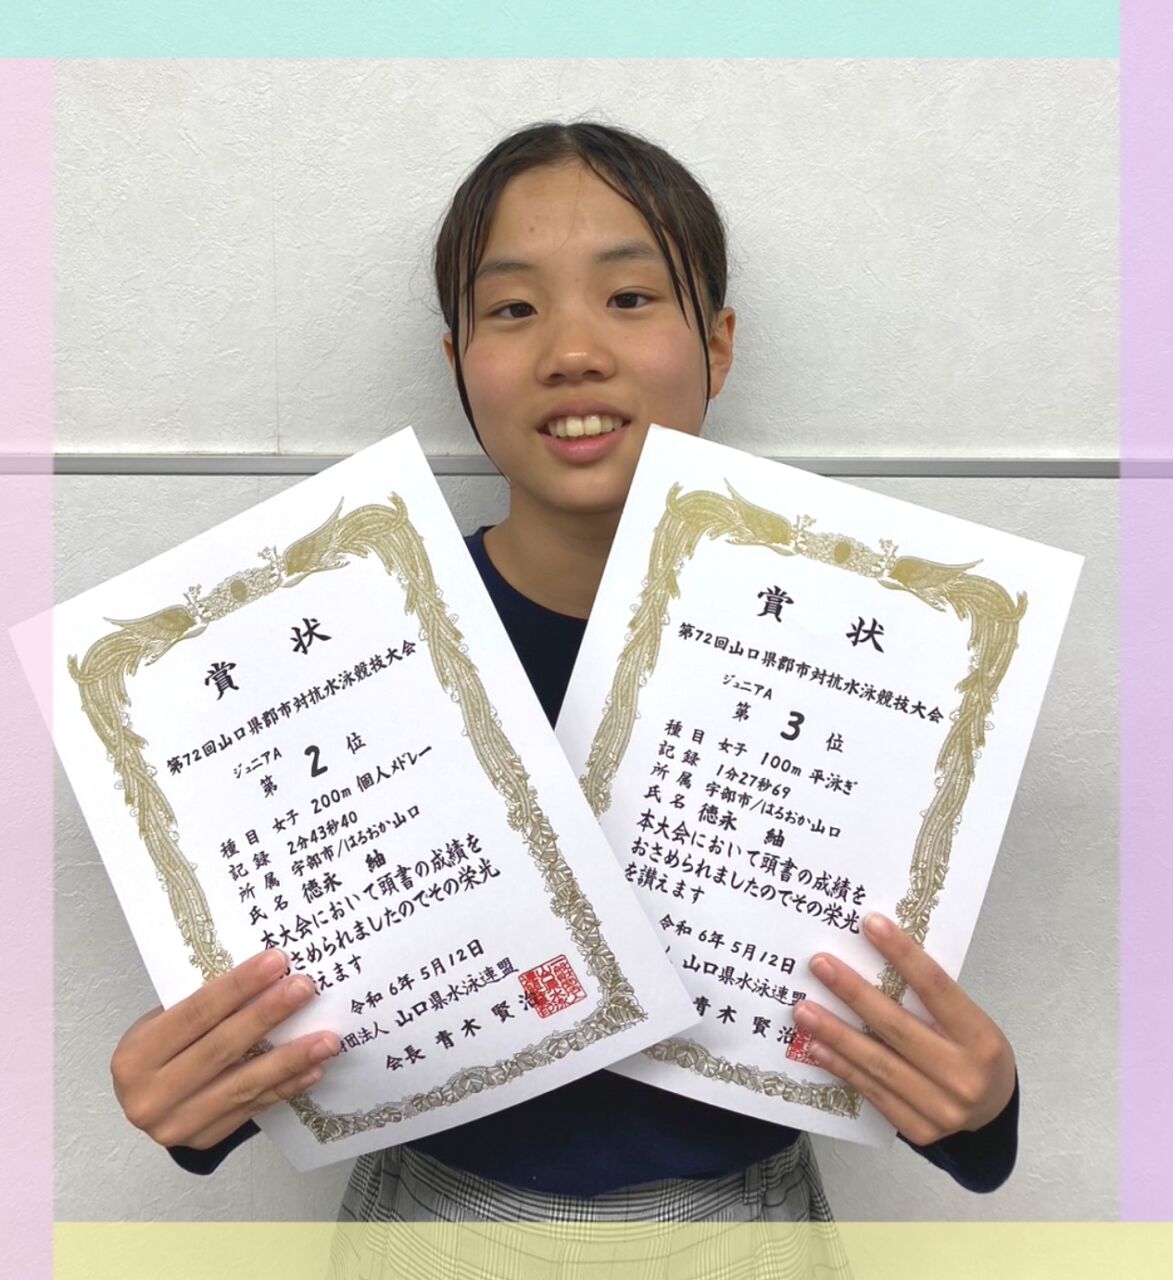 賞状
第72回山口県郡市対抗水泳競技大会
ジュニアA
第 2 位
種目 女子 200m 個人メドレー
記録 2分43秒40
所属 宇部市/はるおか山口
氏名 徳永 紬
本大会において頭書の成績を
おさめられましたのでその栄光
えます
令和 6年 5月12日
財団法人 山口県水泳連盟
会長 青木 賢治
賞状
第72回山口県郡市対抗水泳競技大会
ジュニアA
第 3 位
種目 女子 100m 平泳ぎ
記録 1分27秒69
所属 宇部市/はるおか山口
氏名 徳永 紬
本大会において頭書の成績を
おさめられましたのでその栄光
を讃えます
令和 6年 5月12日
山口県水泳連盟
青木 賢治